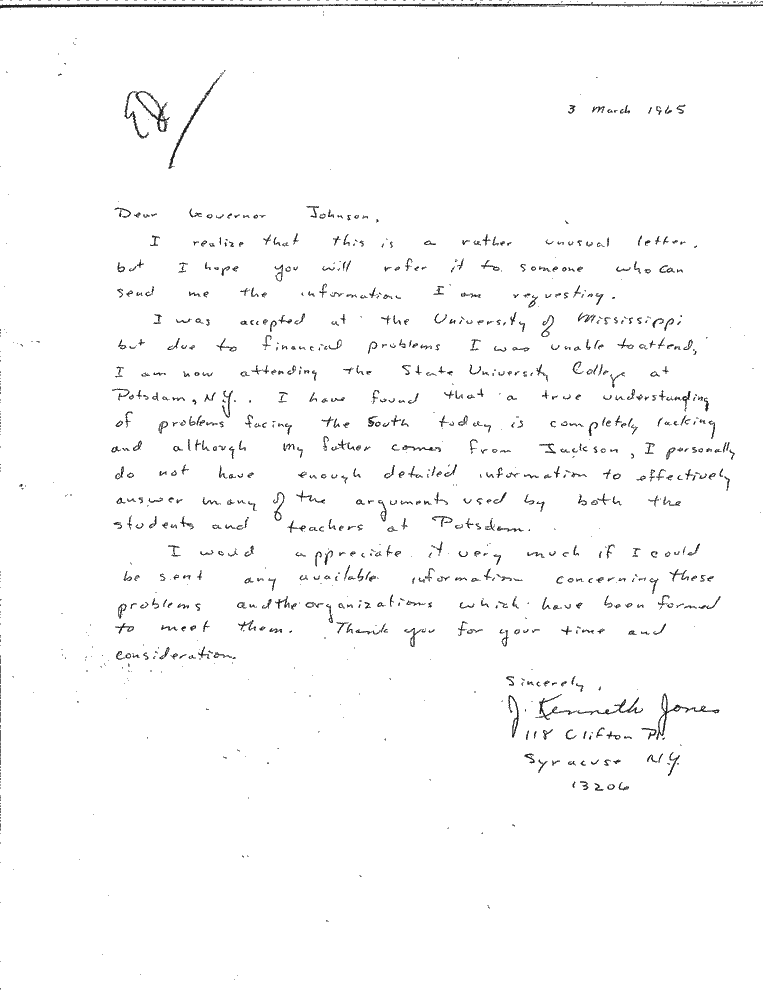 3 March 1965
Dear Governor Johnson,
I realize that this is a rather unusual letter,
but I hope you will refer it to someone who can
send me the information I am requesting.
I was accepted at the University of Mississippi
but due to financial problems I was unable to attend,
I am now attending the State University College at
Potsdam, N.Y.. I have found that a true understanding
of problems facing the South today is completely lacking
and although my father comes from Jackson, I personally
do not have enough detailed information to effectively
answer many of the arguments used by both the
students and teachers at Potsdam.
I would appreciate it very much if I could
be sent any available information concerning these
problems and the organizations which have been formed
to meet them. Thank you for your time and
consideration.
Sincerely,
J. Kenneth Jones
118 Clifton Pl.
Syracuse N.Y.
13206